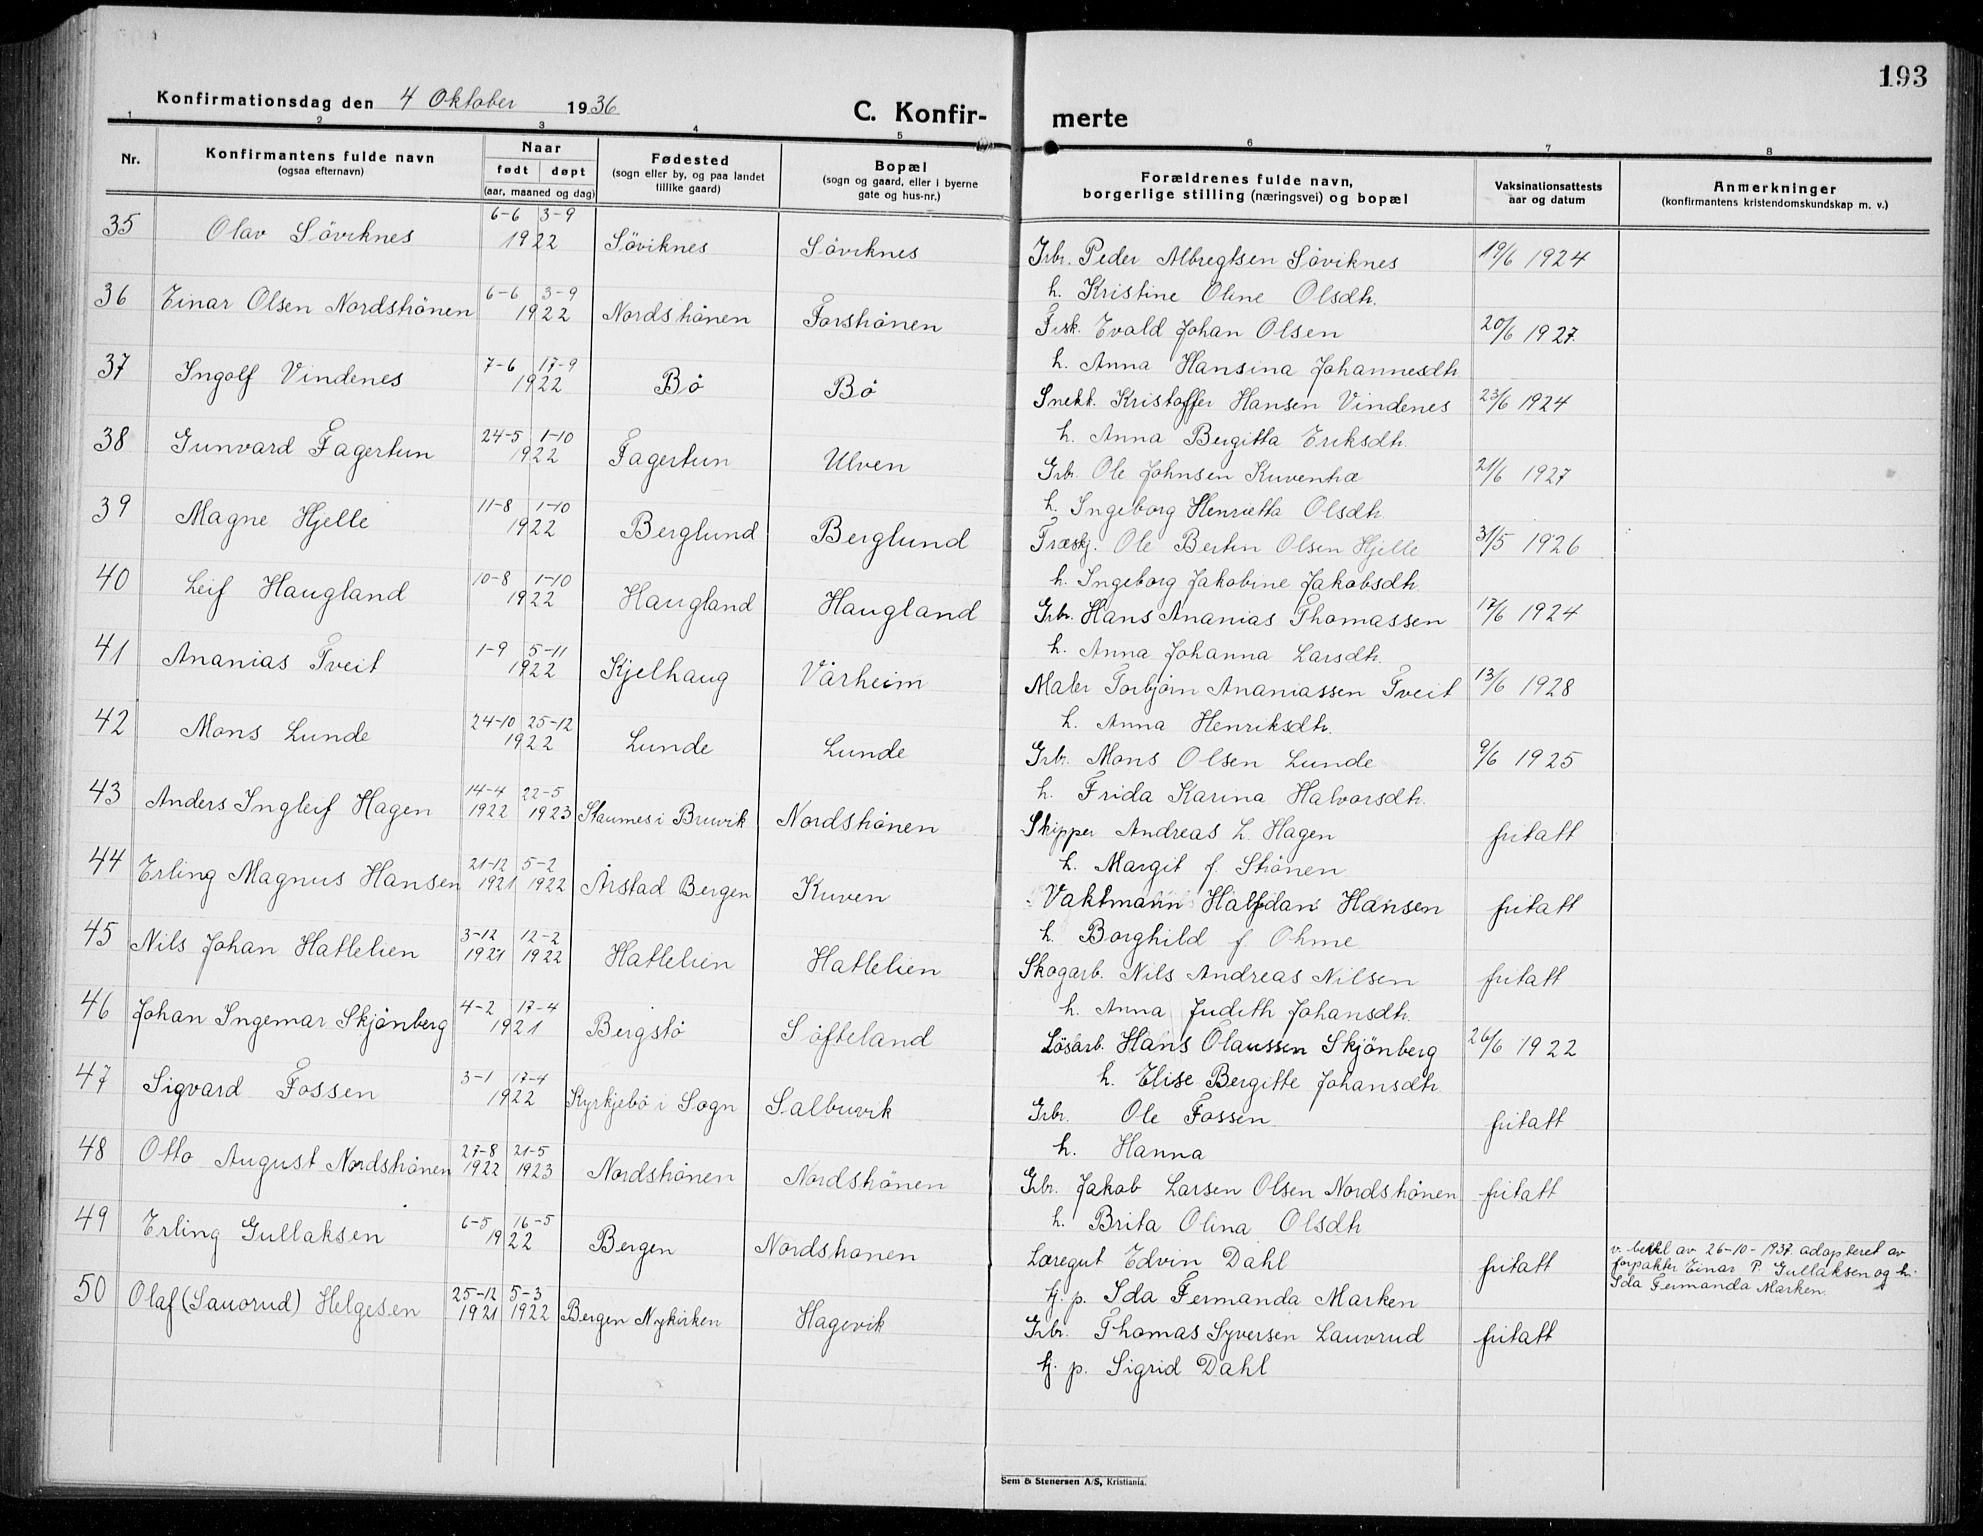 193
Konfirmationsdag den 4 Oktober 1936
C. Konfir- merte
1 2 3 4 5 6 7 8
Nr.
Konfirmantens fulde navn
(ogsaa efternavn)
Naar
født døpt
(aar, maaned og dag)
Fødested
(sogn eller by, og paa landet
tillike gaard)
Bopæl
(sogn og gaard, eller i byerne
gate og hus-nr.)
Forældrenes fulde navn,
borgerlige stilling (næringsvei) og bopæl
Vaksinationsattests
aar og datum
Anmerkninger
(konfirmantens kristendomskundskap m. v.)
35 Olav Søviknes 6-6 3-9 1922 Søviknes Søviknes Grbr. Peder Albregtsen Søviknes 19/6 1924
h. Kristine Oline Olsdh.
36 Einar Olsen Nordshönen 6-6 3-9 1922 Nordshönen Forshönen Fisk. Evald Johan Olsen 20/6 1927
h. Anna Hansina Johannesdh.
37 Ingolf Vindenes 7-6 17-9 1922 Bö Bö Snekk. Kristoffer Hansen Vindenes 23/6 1924
h. Anna Bergitta Eriksdh.
38 Gunvard Fagertun 24-5 1-10 1922 Fagertun Ulven Grbr. Ole Johnsen Kuventræ 21/6 1927
h. Ingeborg Henrietta Olsdh
39 Magne Hjelle 11-8 1-10 1922 Berglund Berglund Træskj. Ole Bertin Olsen Hjelle 31/5 1926
h. Ingeborg Jakobine Jakobsdh.
40 Leif Haugland 10-8 1-10 1922 Haugland Haugland Grbr. Hans Ananias Thomassen 17/6 1924
h. Anna Johanna Larsdh.
41 Ananias Tveit 1-9 5-11 1922 Kjelhaug Vårheim Maler Torbjørn Ananiassen Tveit 13/6 1928
h. Anna Henriksdh.
42 Mons Lunde 24-10 25-12 1922 Lunde Lunde Grbr. Mons Olsen Lunde 9/6 1925
h. Frida Karina Halvorsdh.
43 Anders Ingleif Hagen 14-4 1922 22-5 1923 Staumes i Bruvik Nordshönen Skipper Andreas L. Hagen fritatt
h. Margit f. Skönen
44 Erling Magnus Hansen 21-12 1921 5-2 1922 Årstad Bergen Kuven Vaktmann Halfdan Hansen fritatt
h. Borghild f. Ohme
45 Nils Johan Hattelien 3-12 1921 12-2 1922 Hattelien Hattelien Skogarb. Nils Andreas Nilsen fritatt
h. Anna Judith Johansdh.
46 Johan Ingemar Skjönberg 4-2 17-4 1921 Bergstö Söfteland Løsarb. Hans Olaussen Skjönberg 26/6 1922
h. Elise Bergitte Johansdh.
47 Sigvard Fossen 3-1 17-4 1922 Kyrkjebö i Sogn Salbuvik Grbr. Ole Fossen fritatt
h. Hanna
48 Otto August Nordshönen 27-8 1922 21-5 1923 Nordshönen Nordshönen Grbr. Jakob Larsen Olsen Nordshönen fritatt
h. Brita Olina Olsdh
49 Erling Gullaksen 6-5 16-5 1922 Bergen Nordshönen Læregut Edvin Dahl fritatt v. bevil av 26-10-1937 adopteret av
forpakter Einar P. Gullaksen og h.
Ida Fermanda Marken.
tj. p. Ida Fermanda Marken
50 Olaf (Lauvrud) Helgesen 25-12 1921 5-3 1922 Bergen Nykirken Hagevik Grbr. Thomas Syversen Lauvrud fritatt
tj. p. Sigrid Dahl
Sem & Stenersen A/S, Kristiania.